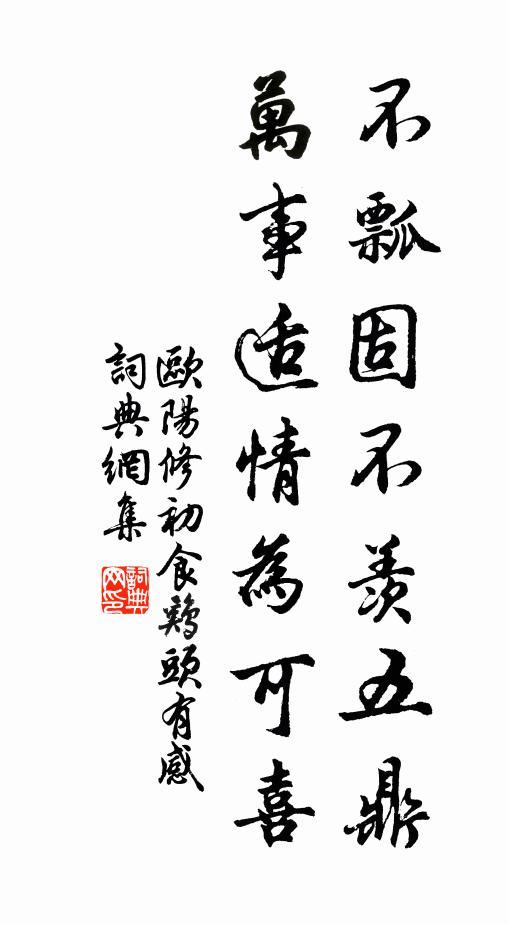 不瓢固不羨五鼎
萬事适情為可喜
歐陽修初食鷄頭有感
詞典網集
詞典
网印